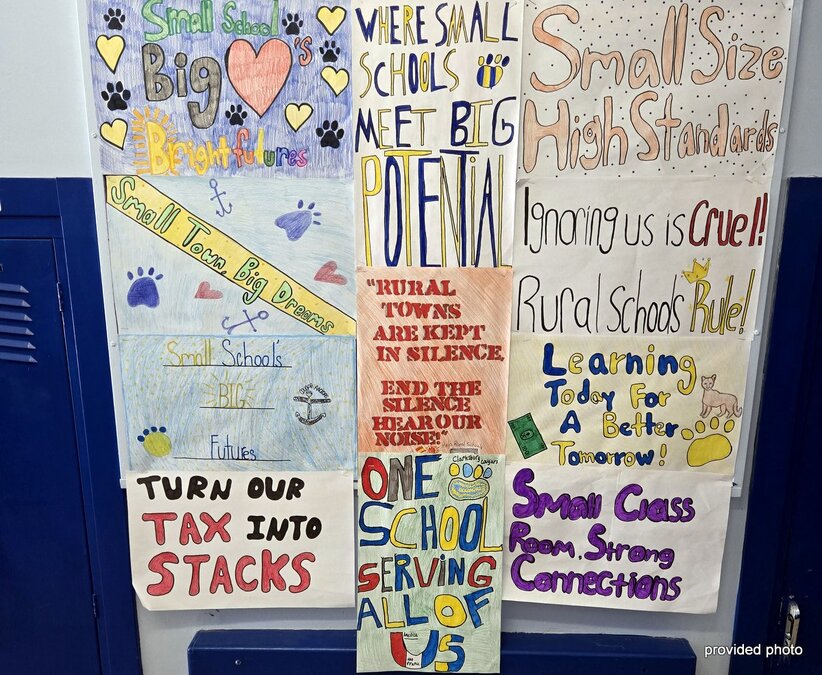 Small School
Big 's
Bright futures
WHERE SMALL
SCHOOLS
MEET BIG
POTENTIAL
Small Size
High Standards
Small Town, Big Dreams
Ignoring us is Cruel!
Rural schools Rule!
Small School's
BIG
Futures
"RURAL
TOWNS
ARE KEPT
IN SILENCE,
END THE
SILENCE
HEAR OUR
NOISE!"
Learning
Today For
A Better
Tomorrow!
TURN OUR
TAX INTO
STACKS
Clarksburg cougars
ONE
SCHOOL
SERVING
ALL OF
US
Small Class
Room, Strong
Connections
provided photo